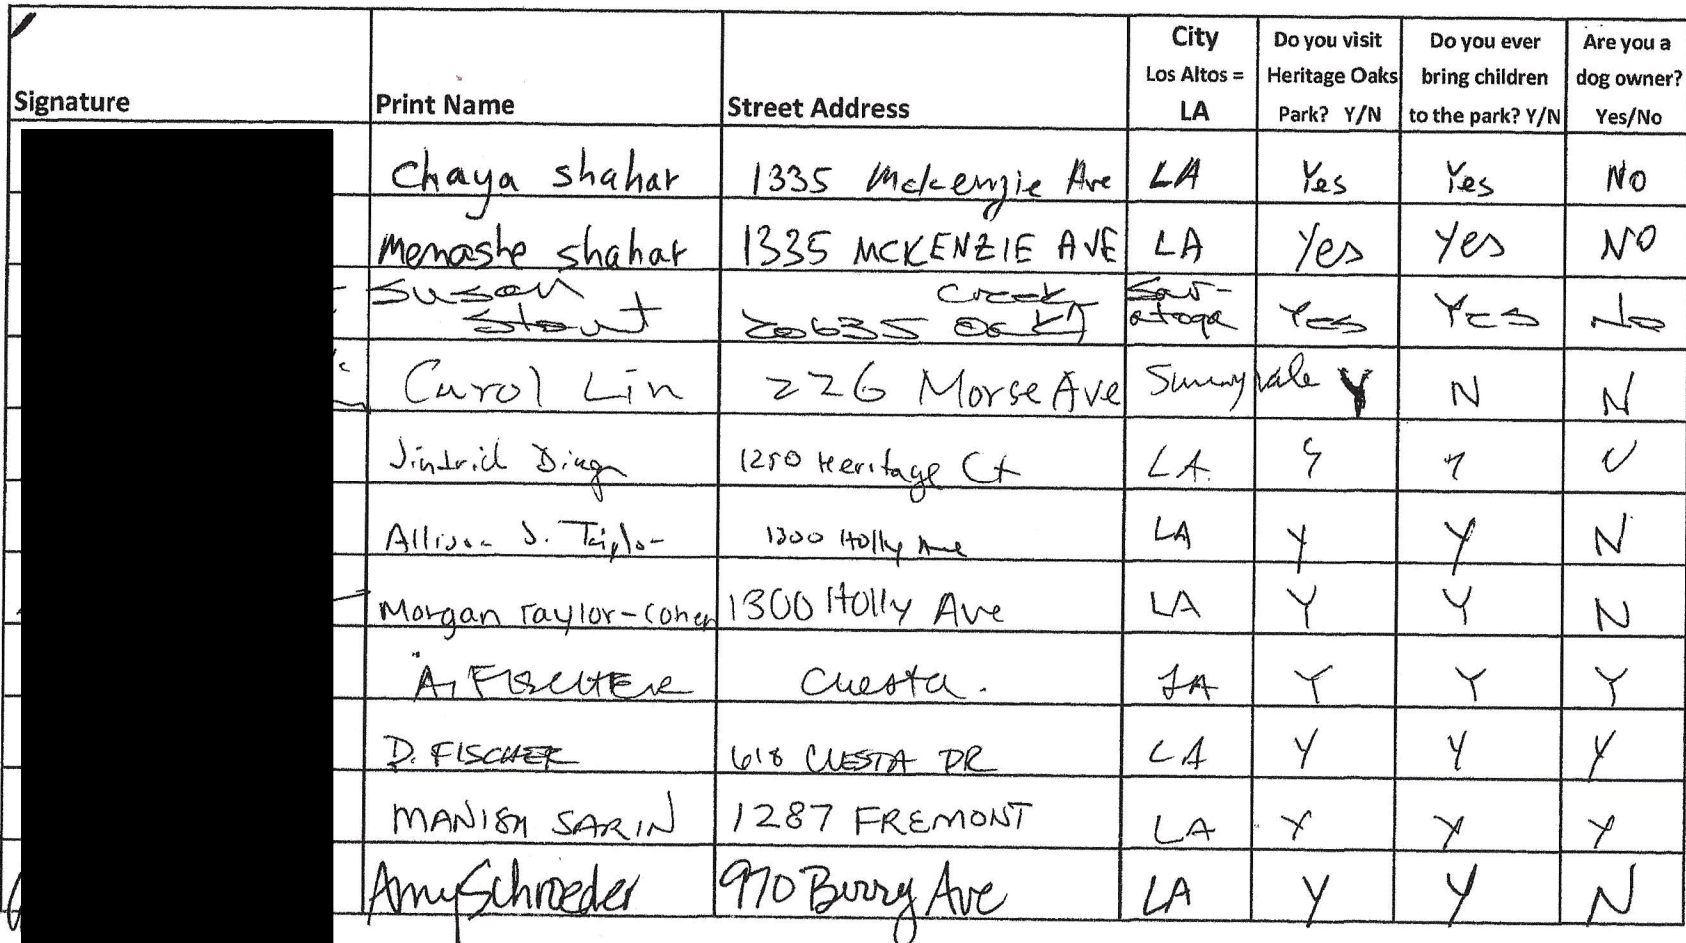 Signature Print Name Street Address City Los Altos = LA Do you visit Heritage Oaks Park? Y/N Do you ever bring children to the park? Y/N Are you a dog owner? Yes/No
Chaya shahar 1335 Mckenzie Ave LA Yes Yes NO
Menashe shahar 1335 MCKENZIE AVE LA Yes Yes NO
Susan Stout 20635 Oak Creek Sar-atoga Yes Yes No
Carol Lin 226 Morse Ave Sunnyvale Y N N
Ding 1250 Heritage Ct LA.
Allison J. Taylor 1300 Holly Ave LA Y Y N
Morgan Taylor-Cohen 1300 Holly Ave LA Y Y N
A. FISCHER Cuesta. LA Y Y Y
D. FISCHER 618 CUESTA DR LA Y Y Y
MANISH SARIN 1287 FREMONT LA Y Y Y
Amy Schroeder 970 Berry Ave LA Y Y N